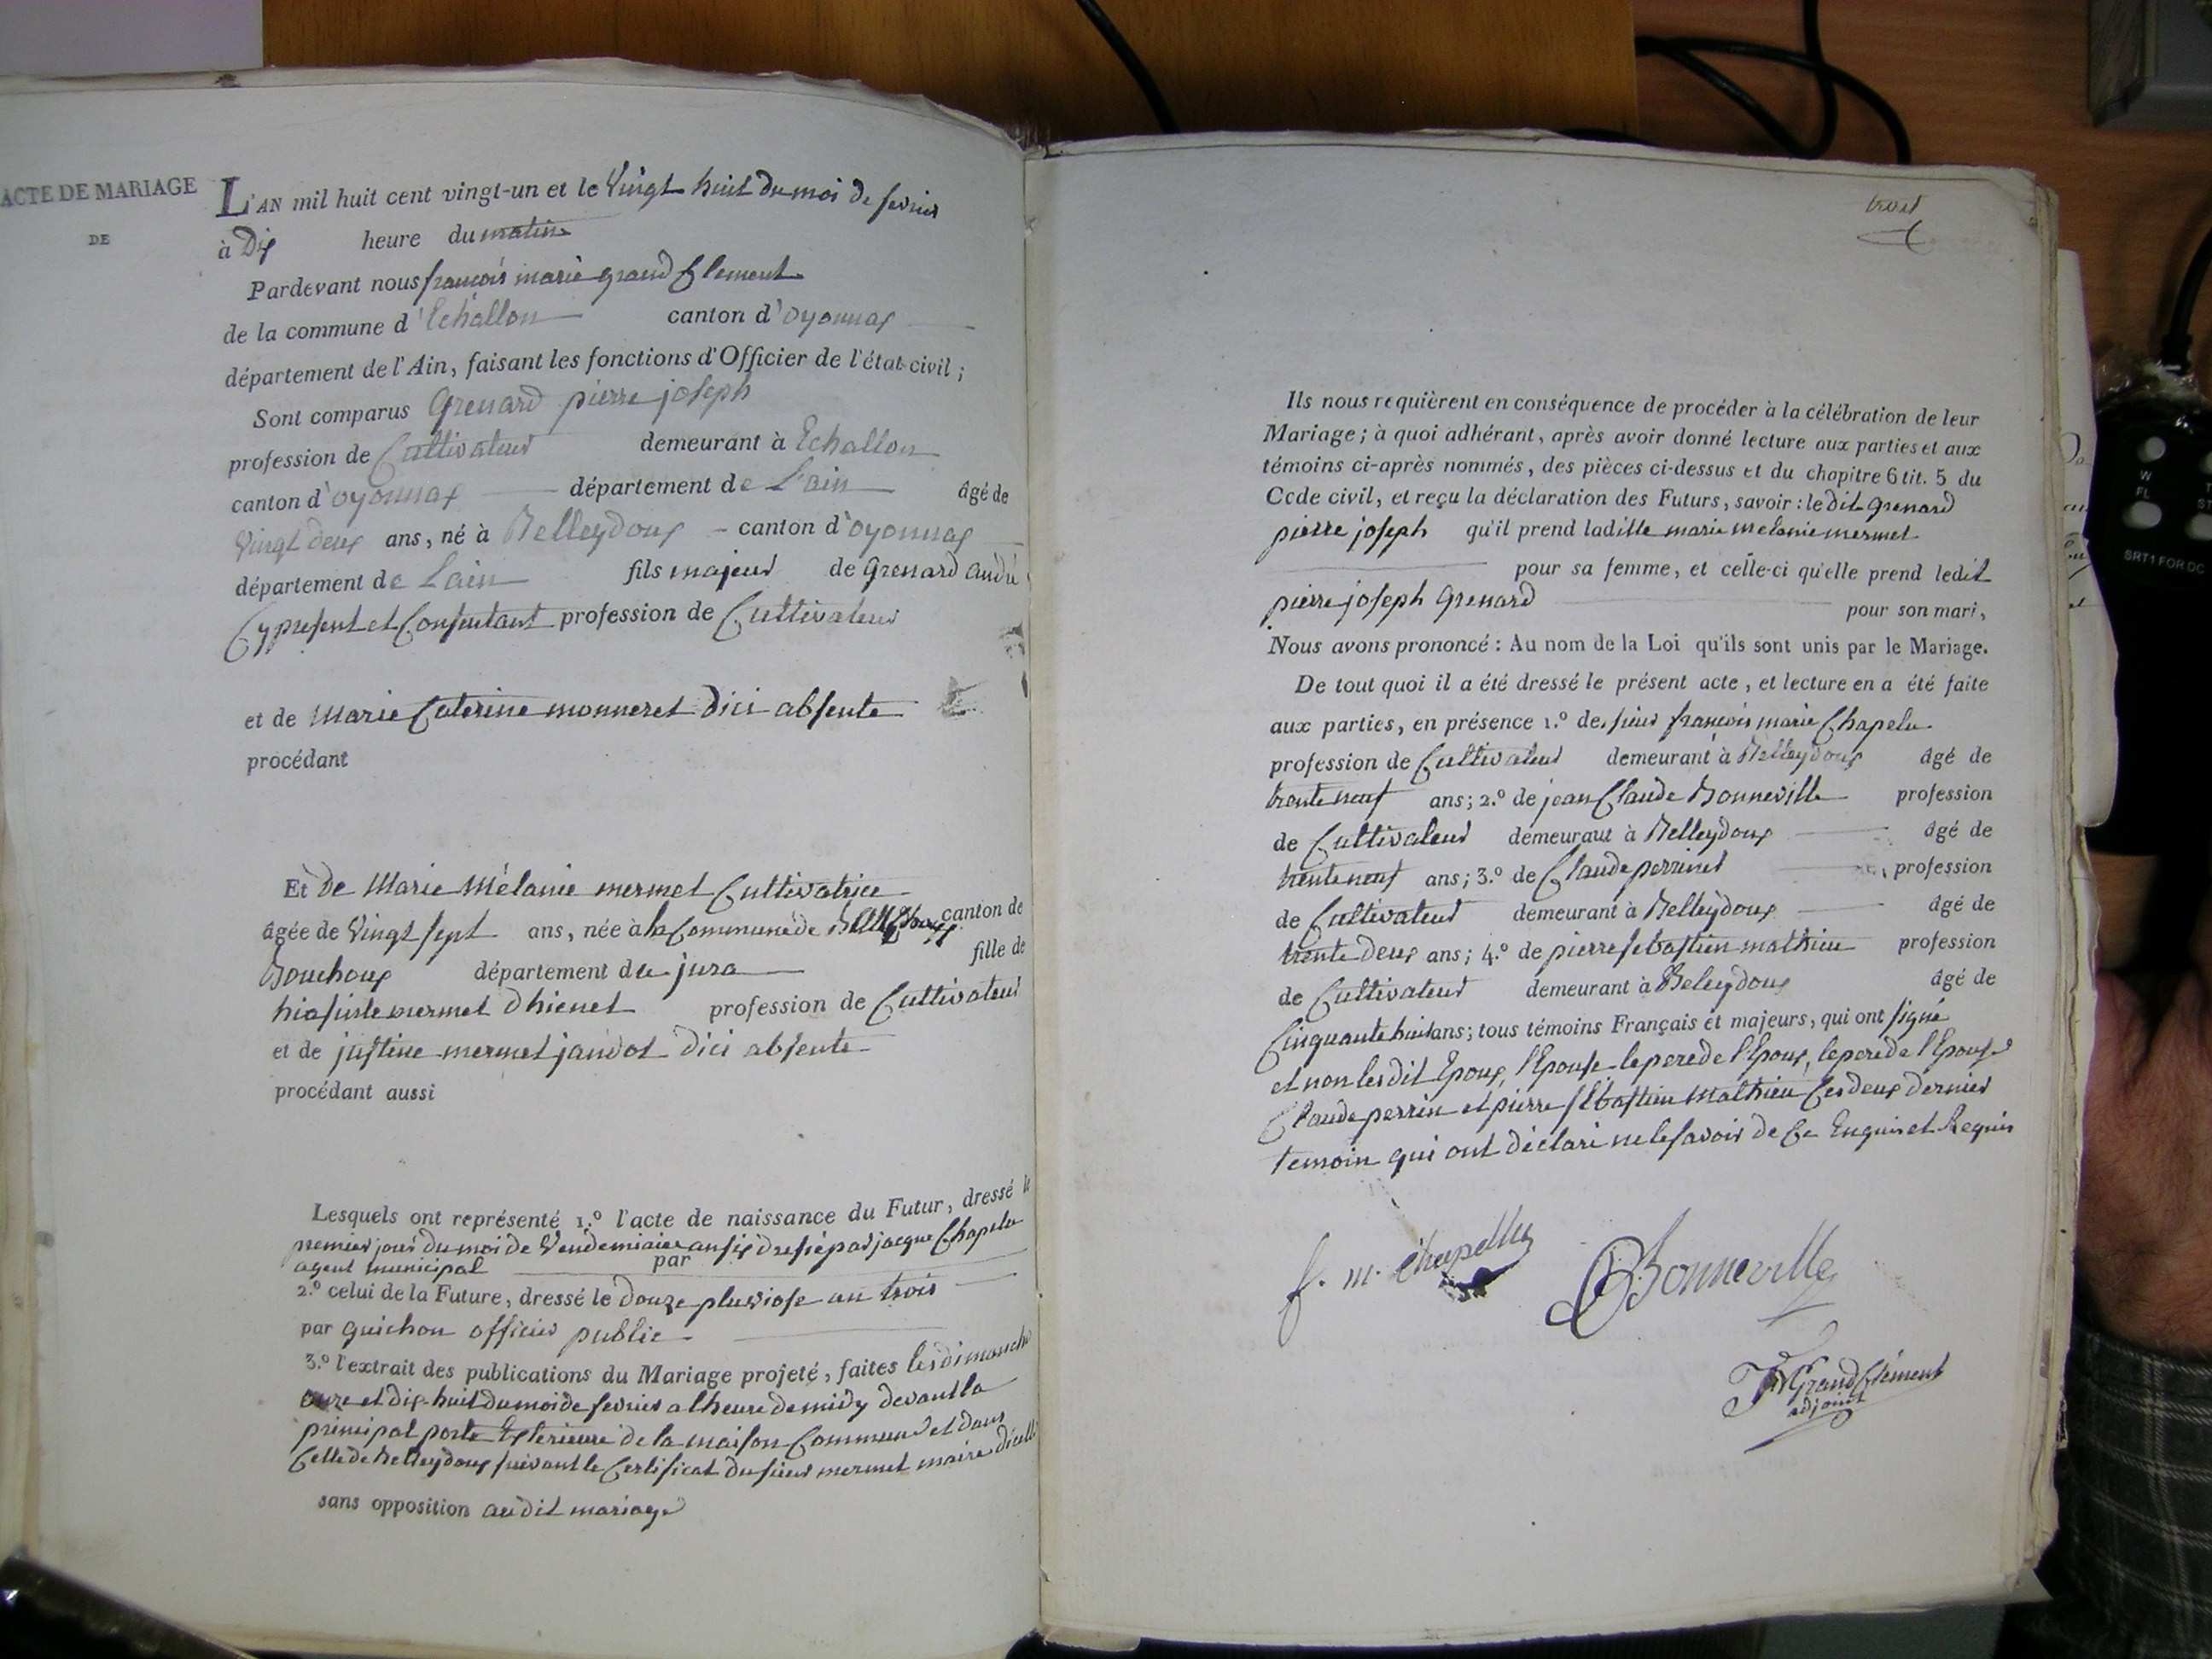 ACTE DE MARIAGE
DE
L'AN mil huit cent vingt-un et le Vingt huit du moi de fevrier
à Dix heure du matin
Pardevant nous françois marie grand Clement
de la commune d'Echallon canton d'oyonnax
département de l'Ain, faisant les fonctions d'Officier de l'état-civil;
Sont comparus Grenard pierre joseph
profession de Cultivateur demeurant à Echallon
canton d'oyonnax département de L'ain âgé de
Vingt deux ans, né à Belleydoux canton d'oyonnax
département de Lain fils majeur de Grenard andré
Cy present et Consentant profession de Cultivateur
et de Marie Caterine monneret dici absente
procédant
Et de Marie Mélanie mermet Cultivatrice
âgée de Vingt sept ans, née à la Commune de canton de
Bouchoux département du jura fille de
hiasinte mermet Dhienet profession de Cultivateur
et de justine mermet jandot dici absente
procédant aussi
Lesquels ont représenté 1.º l'acte de naissance du Futur, dressé le
premier jour du moi de Vendemiaire an six dressé par jacque Chapelu
agent municipal par
2.º celui de la Future, dressé le douze pluviose an trois
par guichon officier public
3.º l'extrait des publications du Mariage projeté, faites les dimanche
onze et dix-huit du moi de fevrier a lheure de midy devant la
principal porte Exterieure de la maison Commune et dans
Celle de Belleydoux suivant le Certificat du sieur mermet maire dicelle
sans opposition au dit mariage
trois
Ils nous requièrent en conséquence de procéder à la célébration de leur
Mariage; à quoi adhérant, après avoir donné lecture aux parties et aux
témoins ci-après nommés, des pièces ci-dessus et du chapitre 6 tit. 5 du
Code civil, et reçu la déclaration des Futurs, savoir: le dit Grenard
pierre joseph qu'il prend laditte marie melanie mermet
pour sa femme, et celle-ci qu'elle prend ledit
pierre joseph Grenard pour son mari,
Nous avons prononcé: Au nom de la Loi qu'ils sont unis par le Mariage.
De tout quoi il a été dressé le présent acte, et lecture en a été faite
aux parties, en présence 1.º de sieur françois marie Chapelu
profession de Cultivateur demeurant à Belleydoux âgé de
trente neuf ans; 2.º de jean Claude Bonneville profession
de Cultivateur demeurant à Belleydoux âgé de
trente neuf ans; 3.º de Claude perrinet profession
de Cultivateur demeurant à Belleydoux âgé de
trente deux ans; 4.º de pierre sebastien mathieu profession
de Cultivateur demeurant à Beleydoux âgé de
Cinquante huit ans; tous témoins Français et majeurs, qui ont signé
et non les dit Epoux, l'Epouse le pere de l'Epoux, le pere de l'Epouse
Claude perrin et pierre sébastien Mathieu Ces deux dernier
temoin qui ont déclaré ne le savoir de Ce Enquis et Requis
f. m. Chapellu
Bonneville
GrandClément
adjoint
W
FL
T
ST
SRT1 FOR DC